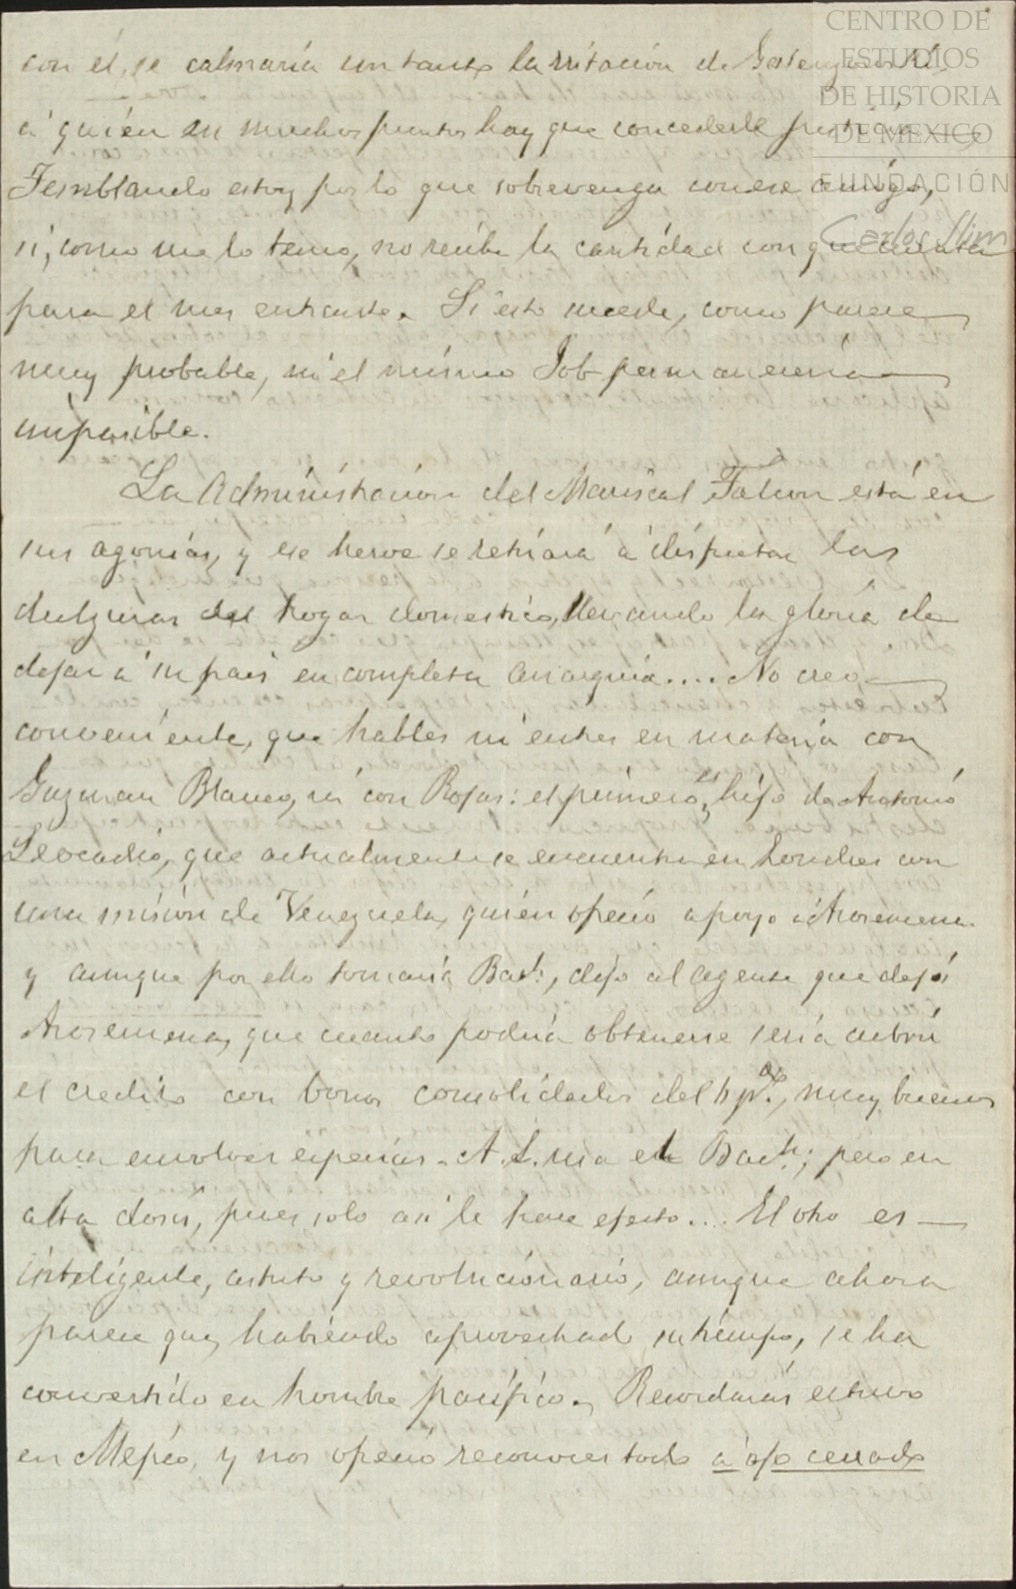 CENTRO DE
ESTUDIOS
DE HISTORIA
DE MEXICO
FUNDACIÓN
Carlos Slim
con él, se calmaría un tanto la irritación de
á quién en muchos puntos hay que concederle justicia
Temblando estoy por lo que sobrevenga con ese amigo,
si, como me lo temo, no recibe la cantidad con que cuenta
para el mes entrante. Si esto sucede, como parece
muy probable, ni el mismo Job permanecería
impasible.
La Administracion del Mariscal Falcon está en
sus agonías, y ese heroe se retirará á disfrutar las
dulzuras del hogar domestico, llevando la gloria de
dejar á su pais en completa anarquía.... No creo
conveniente, que hables ni entres en materia con
Guzman Blanco, ni con Rojas: el primero, es hijo de Antonio
Leocadio, que actualmente se encuentra en Londres con
una misión de Venezuela, quién ofreció apoyo á Aroemena
y aunque por ello tomaría Bach:, dijo al agente que dejó
Arosemena, que cuanto podría obtenerse sería cubrir
el credito con bonos consolidados del 5 p%., muy buenos
para envolver especias. A. L. usa el Bach:; pero en
alta dosis, pues solo asi le hace efecto.... El otro es
inteligente, astuto y revolucionario, aunque ahora
parece que, habiendo aprovechado su tiempo, se ha
convertido en hombre pacífico. Recordarás estuvo
en Méjico, y nos ofreció reconocer todo á ojo cerrado